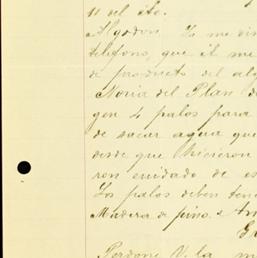 11 del cte.
Algodon. Ya me dir
telefono, que el me
de producto del alg
Noria del Plan (de
gen 4 palos para
de sacar agua que
desde que hicieron
ron cuidado de es
Los palos deben ten
Madera de pino. a
Perdone V. la m